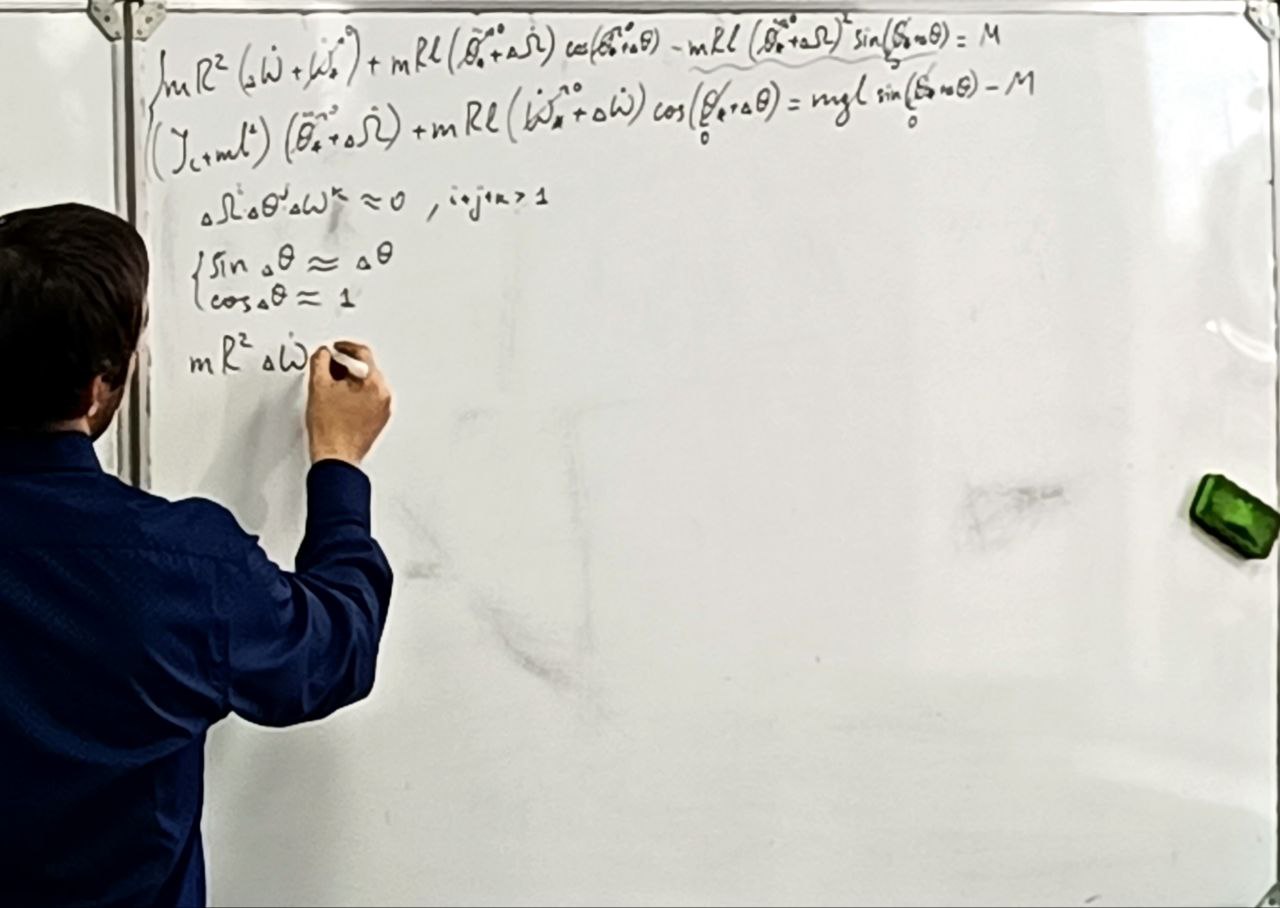 mR² (ΔẆ + Ẇ*→0) + mRl (θ̈*→0 + ΔΩ̇) cos(θ*→0 + Δθ) − mRl (θ̇*→0 + ΔΩ)² sin(θ* + Δθ) = M
(J_c + ml²) (θ̈*→0 + ΔΩ̇) + mRl (Ẇ*→0 + ΔẆ) cos(θ* + Δθ) = mgl sin(θ* + Δθ) − M
ΔΩⁱ Δθʲ ΔWᵏ ≈ 0 , i+j+k > 1
sin Δθ ≈ Δθ
cos Δθ ≈ 1
mR² ΔẆ